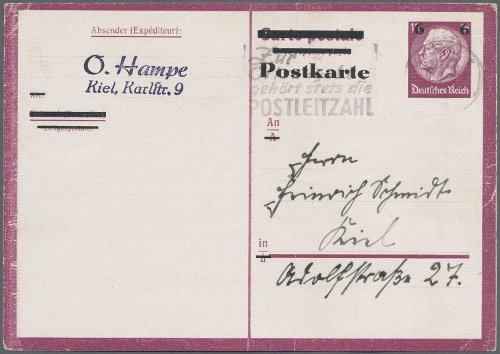 Absender (Expéditeur):
O. Hampe
Kiel, Karlstr. 9
Carte postale
Zur
Postkarte
gehört stets die
POSTLEITZAHL
6 6
Deutsches Reich
An
A
Herrn
Heinrich Schmidt
Kiel
in
à
Adolfstraße 27.